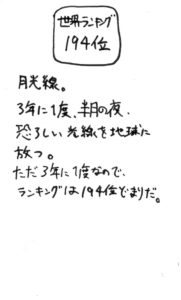 世界ランキング
194位
月光線。
3年に1度、半月の夜、
恐ろしい光線を地球に
放つ。
ただ3年に1度なので、
ランキングは194位どまりだ。